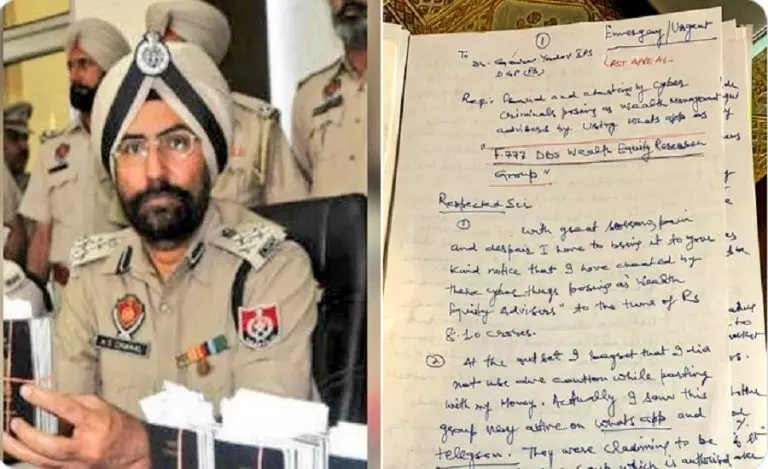 A S CHAHAL
①
Emergency/Urgent
LAST APPEAL.
To Dr. Gaurav Yadav IPS
DGP (PB)
Reg: Fraud and cheating by Cyber
Criminals posing as Wealth Management
advisers by Using Whats app as
"F.777 DBS Wealth Equity Research
Group"
Respected Sir
①
With great sorrow, pain
and despair I have to bring it to your
kind notice that I have cheated by
these cyber thugs posing as "Wealth
Equity Advisors" to the tune of Rs
8.10 crores.
② At the outset I regret that I did
not use due caution while parting
with my Money. Actually I saw this
group very active on Whats app and
telegram. They were claiming to be
which is authorised